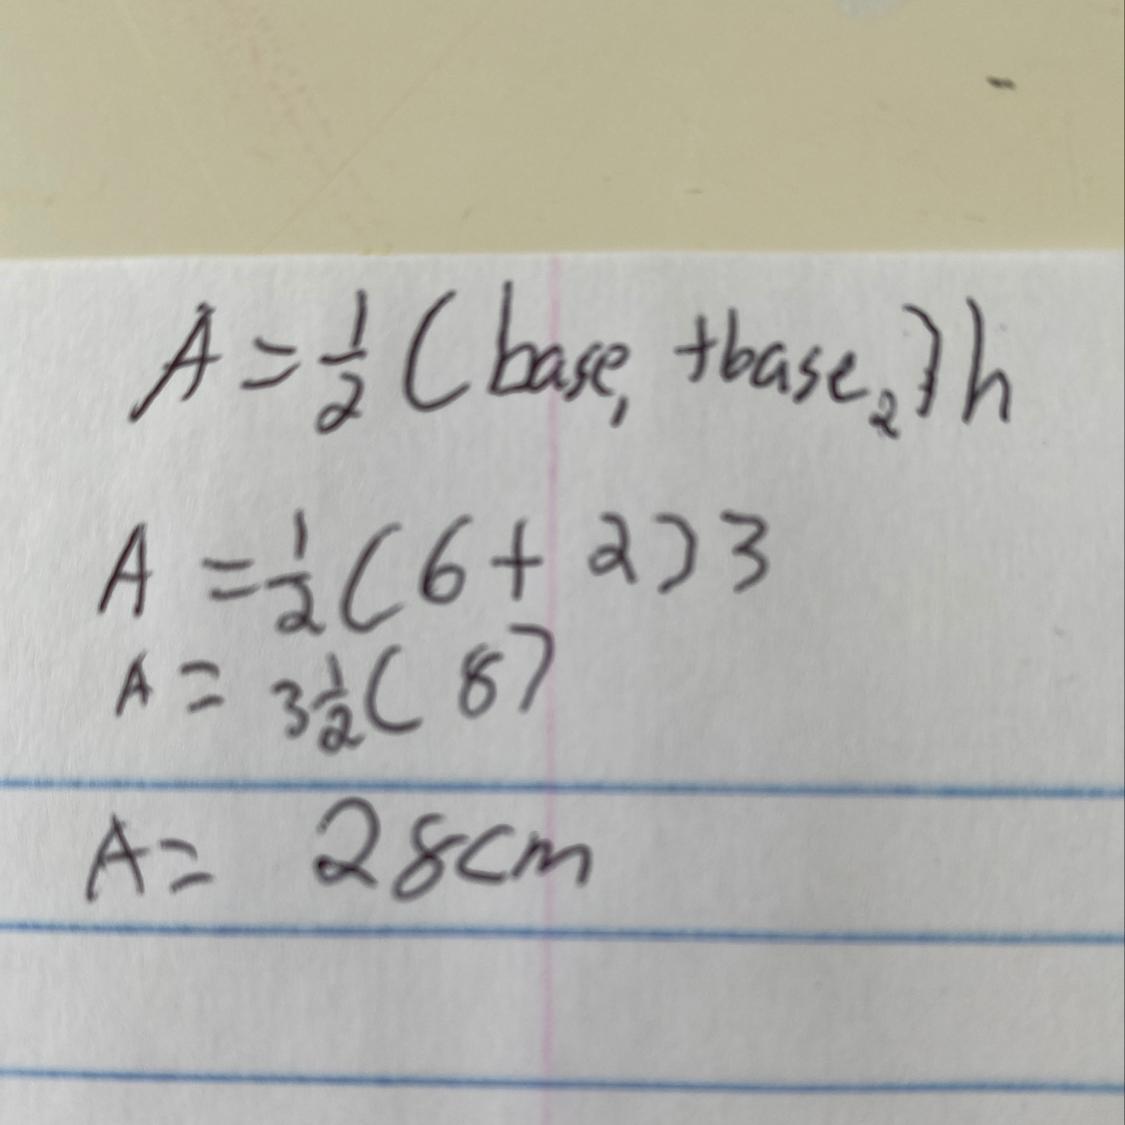 A = 1/2 (base₁ + base₂)h
A = 1/2 (6 + 2)3
A = 3 1/2 (8)
A = 28cm